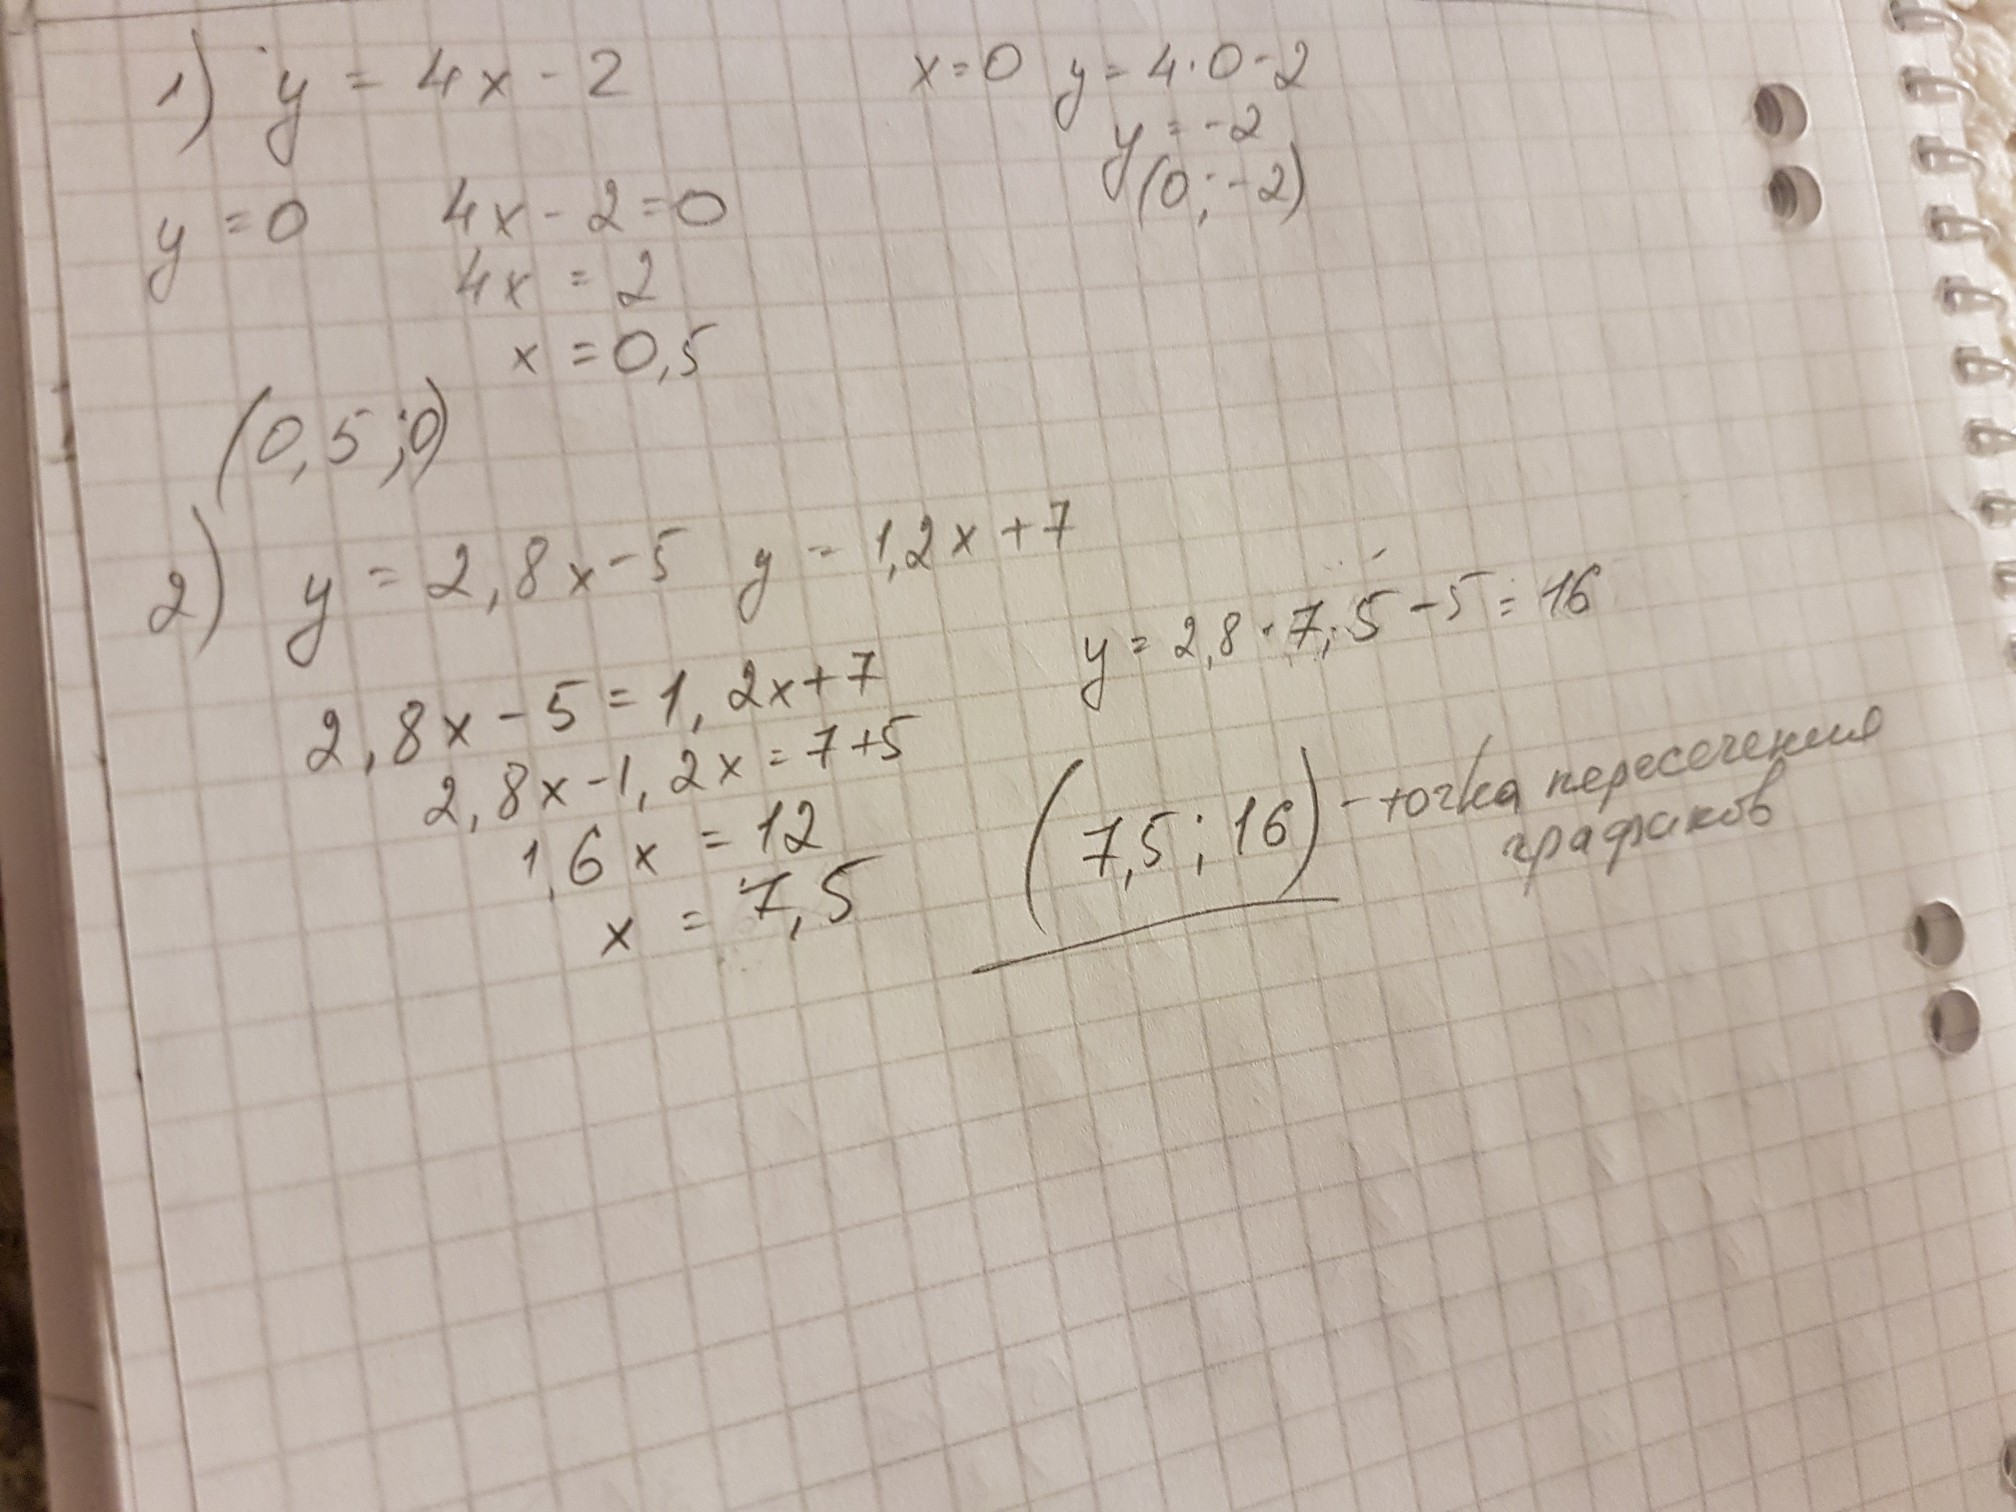 1) y = 4x - 2
y = 0 4x - 2 = 0
4x = 2
x = 0,5
(0,5 ; 0)
x = 0 y = 4 · 0 - 2
y = -2
(0 ; -2)
2) y = 2,8x - 5 y = 1,2x + 7
2,8x - 5 = 1,2x + 7
2,8x - 1,2x = 7 + 5
1,6x = 12
x = 7,5
y = 2,8 · 7,5 - 5 = 16
(7,5 ; 16) - точка пересечения
графиков